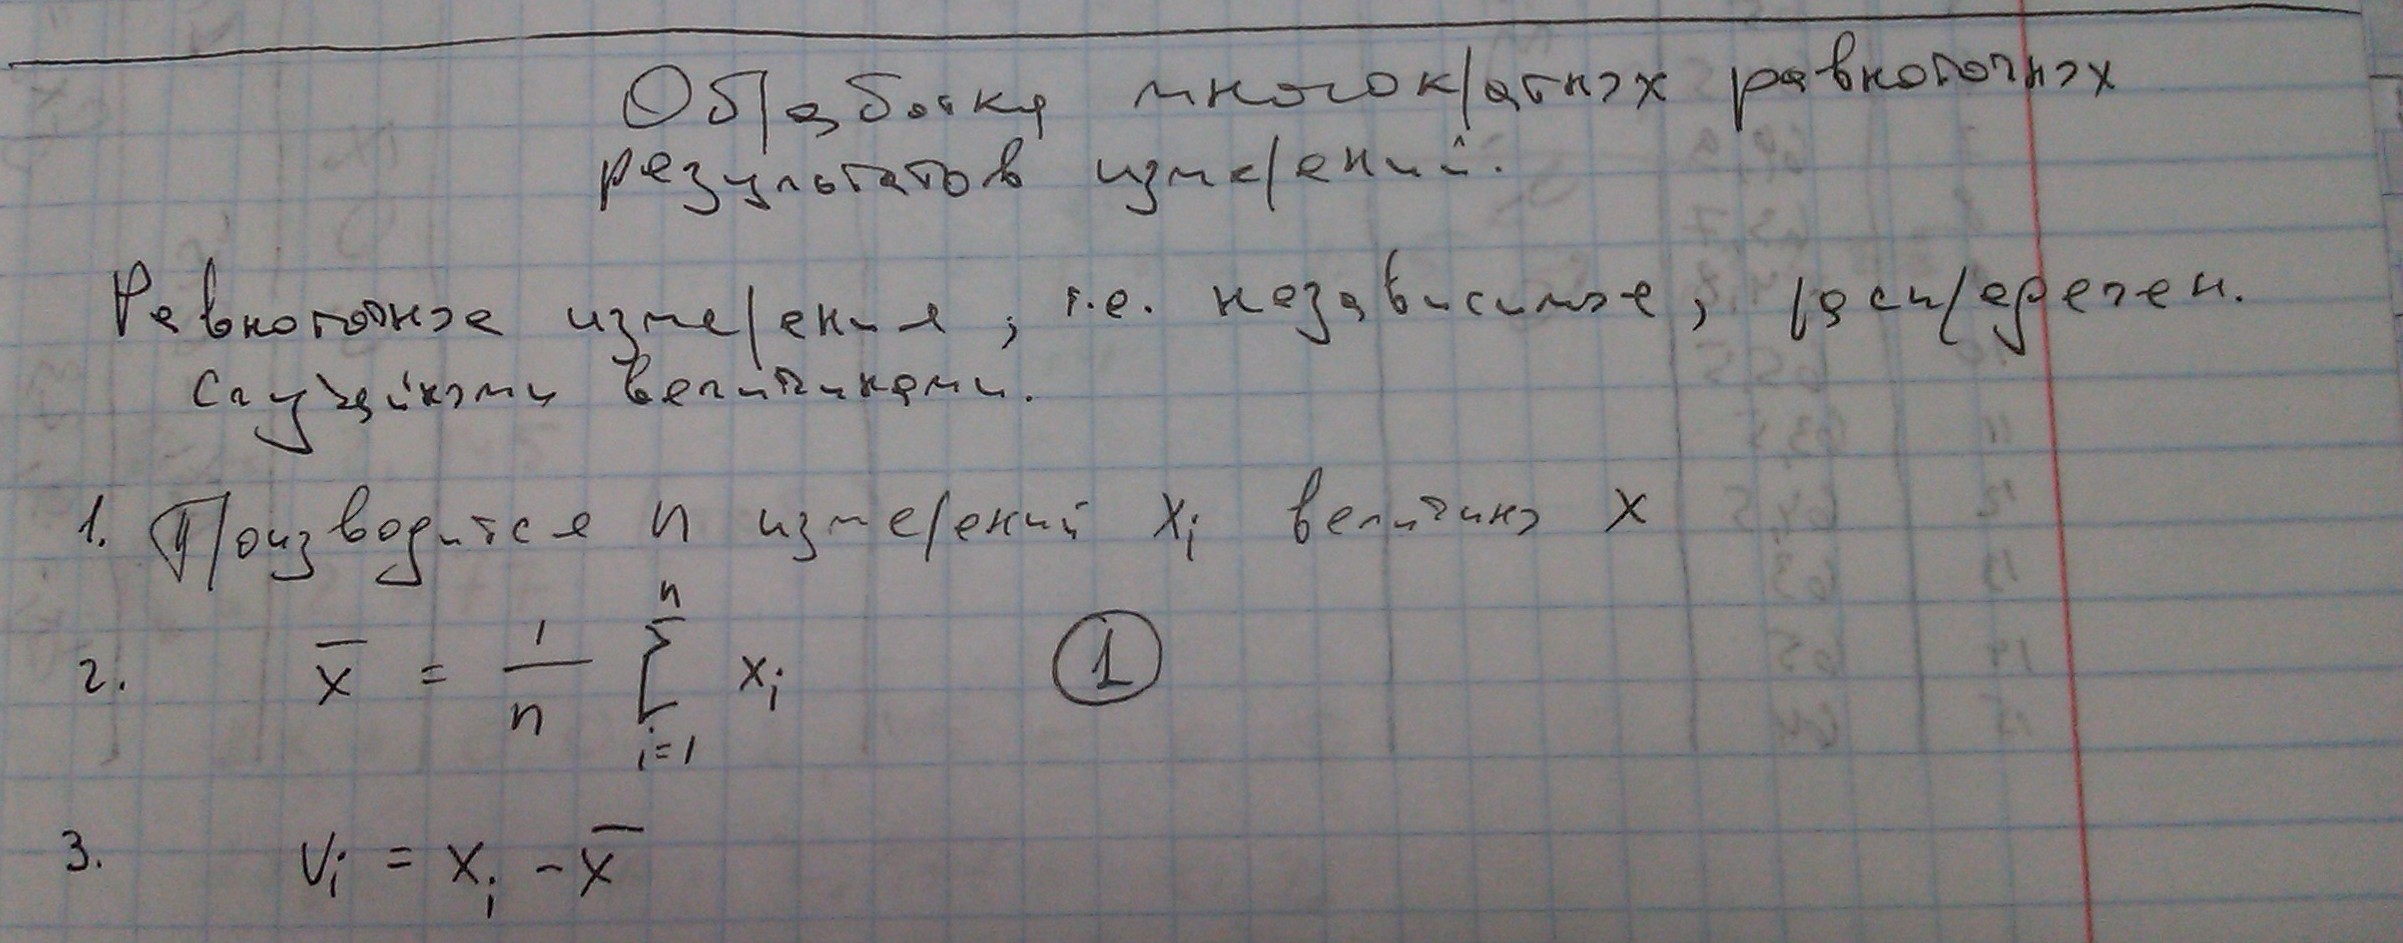 Обработка многократных равноточных
результатов измерений.
Равноточные измерения, т.е. независимые, распределен.
случайными величинами.
1. Производится n измерений xᵢ величины x
2. x̄ = 1/n ∑ᵢ₌₁ⁿ xᵢ (1)
3. vᵢ = xᵢ - x̄